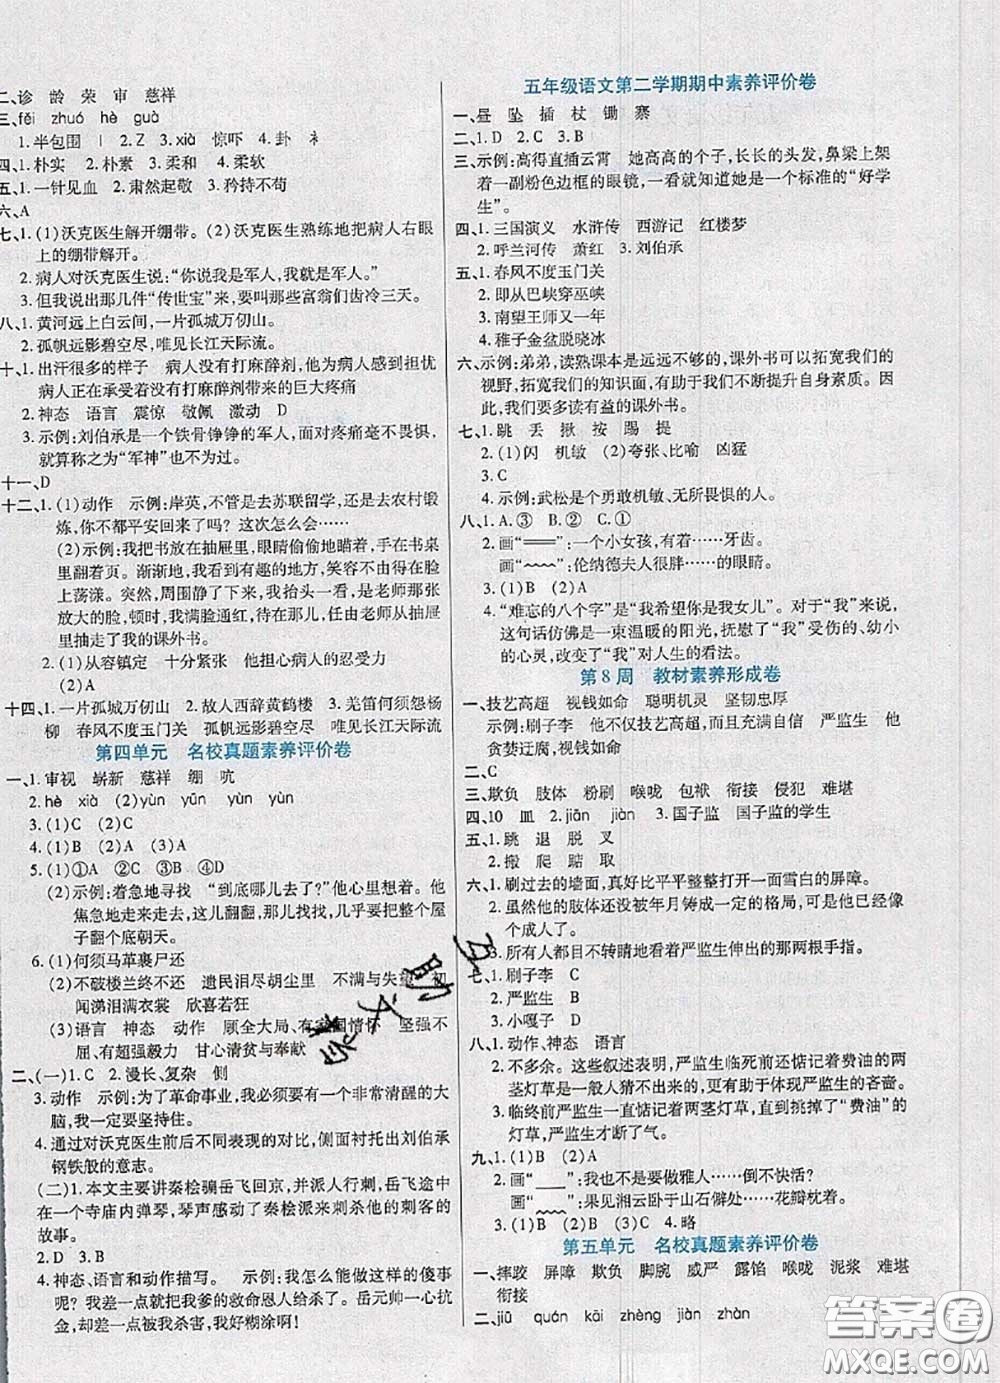 二、诊 龄 荣 审 慈祥
三、fěi zhuó hè guà
1.半包围 | 2.Z 3.xià 惊吓 4.卦 衤
四、1.朴实 2.朴素 3.柔和 4.柔软
五、1.一针见血 2.肃然起敬 3.矜持不苟
六、A
七、1.(1)沃克医生解开绷带。(2)沃克医生熟练地把病人右眼
上的绷带解开。
2.病人对沃克医生说:“你说我是军人,我就是军人。”
3.但我说出那几件“传世宝”来,要叫那些富翁们齿冷三天。
八、1.黄河远上白云间,一片孤城万仞山。
2.孤帆远影碧空尽,唯见长江天际流。
十、1.出汗很多的样子 病人没有打麻醉剂,他为病人感到担忧
病人正在承受没有打麻醉剂带来的巨大疼痛
2.神态 语言 震惊 敬佩 激动 D
3.示例:刘伯承是一个铁骨铮铮的军人,面对疼痛毫不畏惧,
就算称之为“军神”也不为过。
十一、D
十二、1.(1)动作 示例:岸英,不管是去苏联留学,还是去农村锻
炼,你不都平安回来了吗?这次怎么会……
(2)示例:我把书放在抽屉里,眼睛偷偷地瞄着,手在书桌
里悄悄翻着页。渐渐地,我看到有趣的地方,笑容不由得在脸
上荡漾。突然,周围静了下来,我抬头一看,那是老师那张
放大的脸,顿时,我满脸通红,待在那儿,任由老师从抽屉
里抽走了我的课外书。
2.(1)从容镇定 十分紧张 他担心病人的忍受力
(2)A
十四、1.一片孤城万仞山 2.故人西辞黄鹤楼 3.羌笛何须怨杨
柳 春风不度玉门关 孤帆远影碧空尽 唯见长江天际流
第四单元 名校真题素养评价卷
一、1.审视 崭新 慈祥 绷 吭
2.hè xià (2)yùn yūn yùn yùn
3.(1)C (2)C
4.(1)B (2)A (3)A
5.(1)①A ②C ③B ④D
(2)示例:着急地寻找 “到底哪儿去了?”他心里想着。他
焦急地走来走去,这儿翻翻,那儿找找,几乎要把整个屋
子翻个底朝天。
6.(1)何须马革裹尸还
(2)不破楼兰终不还 遗民泪尽胡尘里 不满与失望 初
闻涕泪满衣裳 欣喜若狂
(3)语言 神态 动作 顾全大局、有家国情怀 坚强不
屈、有超强毅力 甘心清贫与奉献
二、(一)1.C 2.漫长、复杂 侧
3.动作 示例:为了革命事业,我需要有一个非常清醒的大
脑,我一定要坚持住。
4.通过对沃克医生前后不同表现的对比,侧面衬托出刘伯承
钢铁般的意志。
(二)1.本文主要讲秦桧骗岳飞回京,并派人行刺,岳飞途中
在一个寺庙内弹琴,琴声感动了秦桧派来刺杀他的刺客的
故事。
2.D 3.B
4.神态、语言和动作描写。 示例:我怎么能做这样的傻事
呢?我差点儿把我爹的救命恩人给杀了。岳元帅一心抗
金,却差一点被我杀害,我好糊涂啊!
五年级语文第二学期期中素养评价卷
一、昼 坠 插 杖 锄 寨
二、1.D 2.C 3.B
三、示例:高得直插云霄 她高高的个子,长长的头发,鼻梁上架
着一副粉色边框的眼镜,一看就知道她是一个标准的“好学
生”。
四、1.三国演义 水浒传 西游记 红楼梦
2.呼兰河传 萧红 3.刘伯承
五、1.春风不度玉门关
2.即从巴峡穿巫峡
3.南望王师又一年
4.稚子金盆脱晓冰
六、示例:弟弟,读熟课本是远远不够的,课外书可以拓宽我们的
视野,拓宽我们的知识面,有助于我们不断提升自身素质。因
此,我们要多读有益的课外书。
七、1.跳 丢 揪 按 踢 提
2.(1)闪 机敏 (2)夸张、比喻 凶猛
3.C
4.示例:武松是个勇敢机敏、无所畏惧的人。
八、1.A.③ B.② C.①
2.画“═══”:一个小女孩,有着……牙齿。
画“﹏﹏”:伦纳德夫人很胖……的眼睛。
3.(1)B (2)A
4.“难忘的八个字”是“我希望你是我女儿”。对于“我”来说,
这句话仿佛是一束温暖的阳光,抚慰了“我”受伤的、幼小
的心灵,改变了“我”对人生的看法。
第8周 教材素养形成卷
一、技艺高超 视钱如命 聪明机灵 坚韧忠厚
示例:刷子李 他不仅技艺高超,而且充满自信 严监生 他
贪婪迂腐,视钱如命
二、C
三、欺负 肢体 粉刷 喉咙 包袱 衔接 侵犯 难堪
四、10 皿 2.jiān jiàn 3.国子监 国子监的学生
五、1.跳 退 脱 叉
2.搬 爬 踮 取
六、1.刷过去的墙面,真好比平平整整打开一面雪白的屏障。
2.虽然他的肢体还没有被年月铸成一定的格局,可是已经像
个成人了。
3.所有人都目不转睛地看着严监生伸出的那两根手指。
七、1.刷子李 C
2.严监生 B
3.小嘎子 A
八、1.动作、神态 语言
2.不多余。这些叙述表明,严监生临死前还惦记着费油的两
茎灯草是一般人猜不出来的,更有助于体现严监生的吝啬。
3.临终前严监生一直惦记着两茎灯草,直到挑掉了“费油”的
灯草,严监生才断了气。
九、1.(1)B (2)A
2.画“____”:还可以,也不是要做雅人……倒不快活?
画“﹏﹏”:果见湘云卧于山石僻处……花瓣枕着。
3.(1)B (2)B (3)C 4.略
第五单元 名校真题素养评价卷
一、摔跤 屏障 欺负 脚腕 威严 露馅 喉咙 泥浆 难堪
衔接
二、jiū quán kāi zhèng jiàn zhàn
答案圈
MXQE.COM